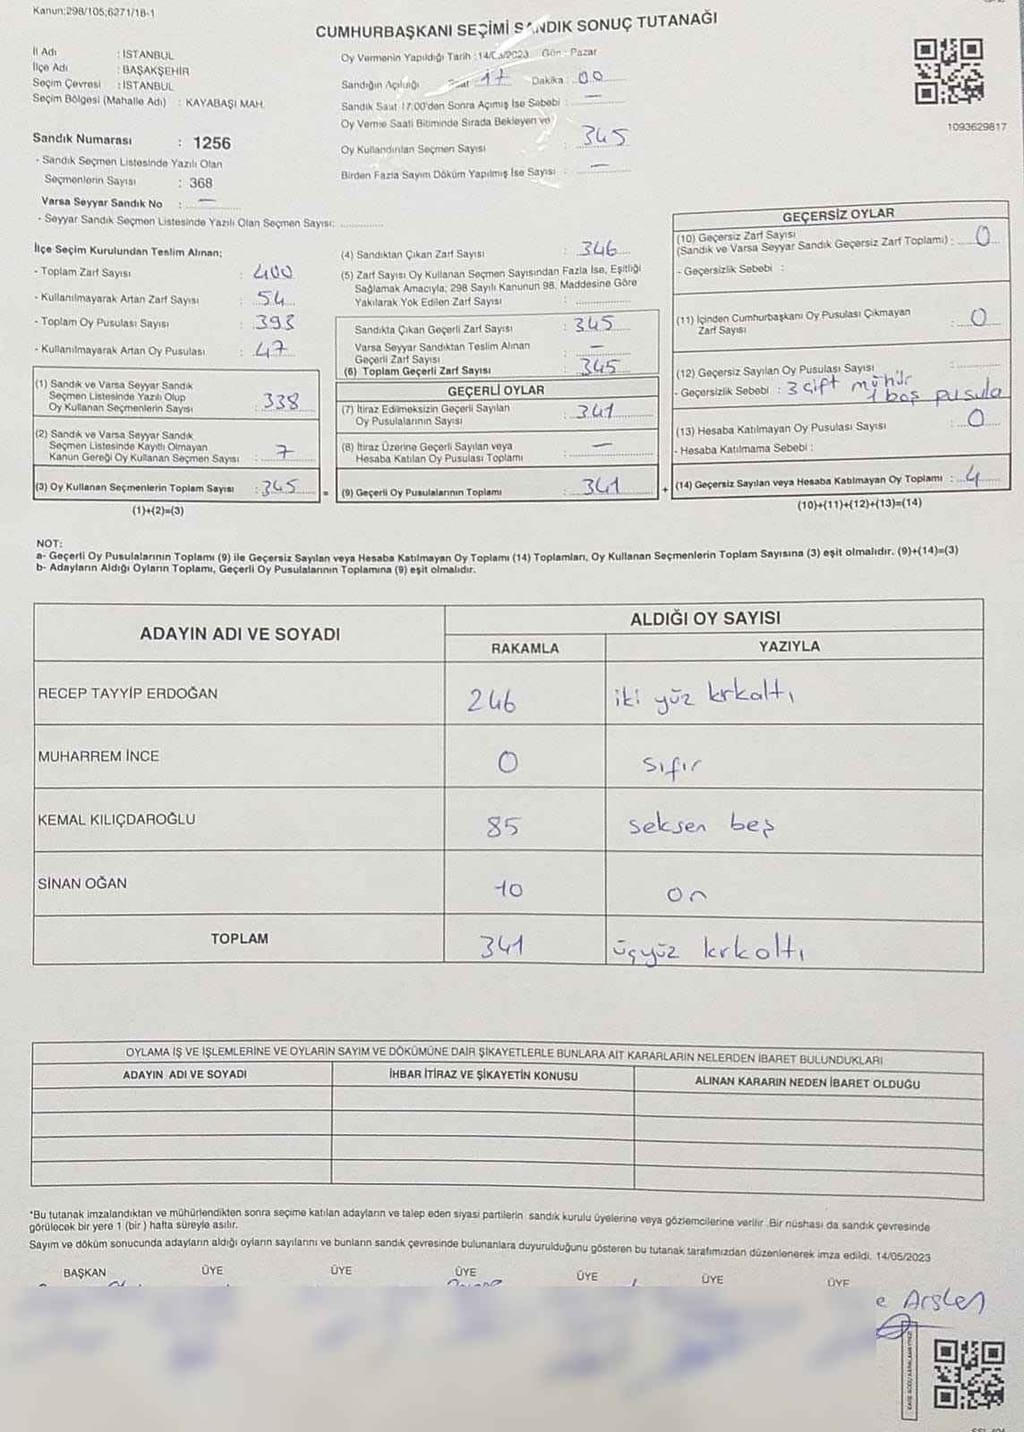 Kanun:298/105;6271/18-1
CUMHURBAŞKANI SEÇİMİ SANDIK SONUÇ TUTANAĞI
İl Adı : İSTANBUL
İlçe Adı : BAŞAKŞEHİR
Seçim Çevresi : İSTANBUL
Seçim Bölgesi (Mahalle Adı) : KAYABAŞI MAH.
Sandık Numarası : 1256
- Sandık Seçmen Listesinde Yazılı Olan
Seçmenlerin Sayısı : 368
Varsa Seyyar Sandık No : —
- Seyyar Sandık Seçmen Listesinde Yazılı Olan Seçmen Sayısı: ..............
Oy Vermenin Yapıldığı Tarih : 14/05/2023 Gün : Pazar
Sandığın Açılışı Saat 17 Dakika : 00
Sandık Saat 17:00'den Sonra Açılmış İse Sebebi : —
Oy Verme Saati Bitiminde Sırada Bekleyen ve
Oy Kullandırılan Seçmen Sayısı : 345
Birden Fazla Sayım Döküm Yapılmış İse Sayısı : —
1093629817
İlçe Seçim Kurulundan Teslim Alınan;
- Toplam Zarf Sayısı : 400
- Kullanılmayarak Artan Zarf Sayısı : 54
- Toplam Oy Pusulası Sayısı : 393
- Kullanılmayarak Artan Oy Pusulası : 47
(1) Sandık ve Varsa Seyyar Sandık
Seçmen Listesinde Yazılı Olup
Oy Kullanan Seçmenlerin Sayısı : 338
(2) Sandık ve Varsa Seyyar Sandık
Seçmen Listesinde Kayıtlı Olmayan
Kanun Gereği Oy Kullanan Seçmen Sayısı : 7
(3) Oy Kullanan Seçmenlerin Toplam Sayısı : 345
(1)+(2)=(3)
(4) Sandıktan Çıkan Zarf Sayısı : 346
(5) Zarf Sayısı Oy Kullanan Seçmen Sayısından Fazla İse, Eşitliği
Sağlamak Amacıyla; 298 Sayılı Kanunun 98. Maddesine Göre
Yakılarak Yok Edilen Zarf Sayısı : ..............
Sandıkta Çıkan Geçerli Zarf Sayısı : 345
Varsa Seyyar Sandıktan Teslim Alınan
Geçerli Zarf Sayısı : —
(6) Toplam Geçerli Zarf Sayısı : 345
GEÇERLİ OYLAR
(7) İtiraz Edilmeksizin Geçerli Sayılan
Oy Pusulalarının Sayısı : 341
(8) İtiraz Üzerine Geçerli Sayılan veya
Hesaba Katılan Oy Pusulası Toplamı : —
= (9) Geçerli Oy Pusulalarının Toplamı : 341
GEÇERSİZ OYLAR
(10) Geçersiz Zarf Sayısı
(Sandık ve Varsa Seyyar Sandık Geçersiz Zarf Toplamı) : 0
- Geçersizlik Sebebi :
(11) İçinden Cumhurbaşkanı Oy Pusulası Çıkmayan
Zarf Sayısı : 0
(12) Geçersiz Sayılan Oy Pusulası Sayısı : ..............
- Geçersizlik Sebebi : 3 çift mühür
1 boş pusula
(13) Hesaba Katılmayan Oy Pusulası Sayısı : 0
- Hesaba Katılmama Sebebi :
+ (14) Geçersiz Sayılan veya Hesaba Katılmayan Oy Toplamı : 4
(10)+(11)+(12)+(13)=(14)
NOT:
a- Geçerli Oy Pusulalarının Toplamı (9) ile Geçersiz Sayılan veya Hesaba Katılmayan Oy Toplamı (14) Toplamları, Oy Kullanan Seçmenlerin Toplam Sayısına (3) eşit olmalıdır. (9)+(14)=(3)
b- Adayların Aldığı Oyların Toplamı, Geçerli Oy Pusulalarının Toplamına (9) eşit olmalıdır.
ADAYIN ADI VE SOYADI
ALDIĞI OY SAYISI
RAKAMLA YAZIYLA
RECEP TAYYİP ERDOĞAN 246 iki yüz kırkaltı
MUHARREM İNCE 0 sıfır
KEMAL KILIÇDAROĞLU 85 seksen beş
SİNAN OĞAN 10 on
TOPLAM 341 üçyüz kırkaltı
OYLAMA İŞ VE İŞLEMLERİNE VE OYLARIN SAYIM VE DÖKÜMÜNE DAİR ŞİKAYETLERLE BUNLARA AİT KARARLARIN NELERDEN İBARET BULUNDUKLARI
ADAYIN ADI VE SOYADI İHBAR İTİRAZ VE ŞİKAYETİN KONUSU ALINAN KARARIN NEDEN İBARET OLDUĞU
*Bu tutanak imzalandıktan ve mühürlendikten sonra seçime katılan adayların ve talep eden siyasi partilerin sandık kurulu üyelerine veya gözlemcilerine verilir. Bir nüshası da sandık çevresinde
görülecek bir yere 1 (bir) hafta süreyle asılır.
Sayım ve döküm sonucunda adayların aldığı oyların sayılarını ve bunların sandık çevresinde bulunanlara duyurulduğunu gösteren bu tutanak tarafımızdan düzenlenerek imza edildi. 14/05/2023
BAŞKAN ÜYE ÜYE ÜYE ÜYE ÜYE ÜYE
e Arslan